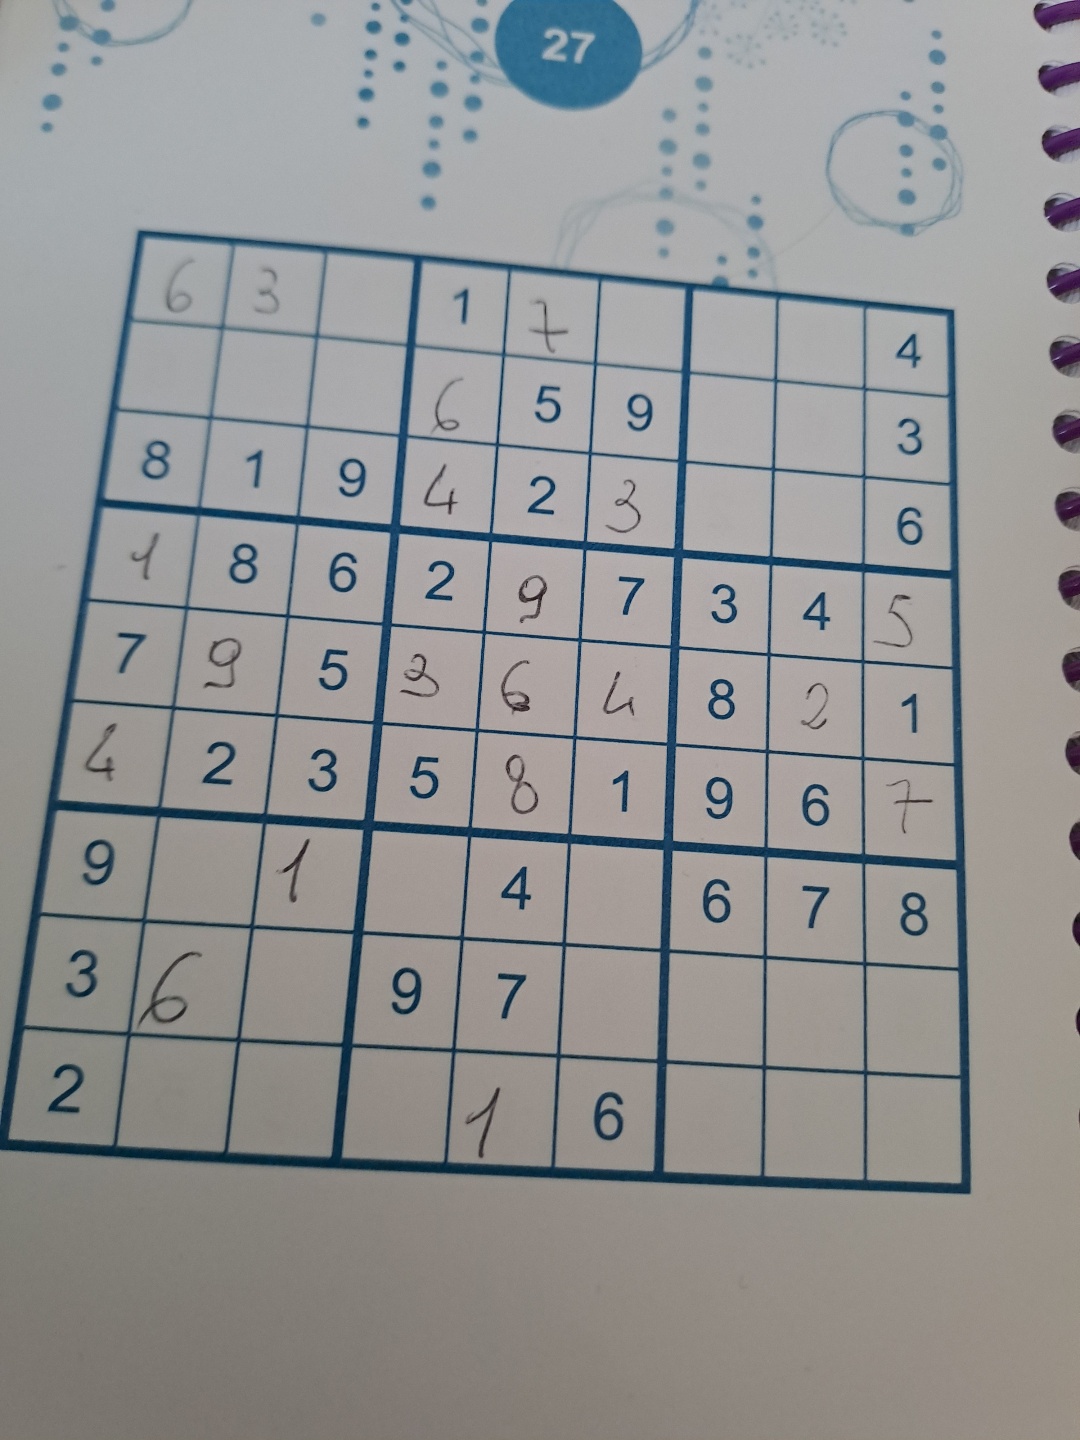 27
6 3 1 7 4
6 5 9 3
8 1 9 4 2 3 6
1 8 6 2 9 7 3 4 5
7 9 5 3 6 4 8 2 1
4 2 3 5 8 1 9 6 7
9 1 4 6 7 8
3 6 9 7
2 1 6